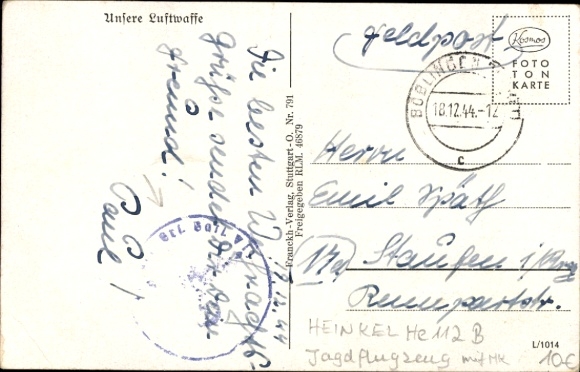 Unsere Luftwaffe
Die besten Weihnachts-
grüße sendet Dir dein
Freund!
Paul
17.12.44
Franckh-Verlag, Stuttgart-O. Nr. 791
Freigegeben RLM. 46879
Feldpost
Kosmos
FOTO
TON
KARTE
BÖBLINGEN
18.12.44.-12
c
Herrn
Emil Späth
Staufen i/Brg
HEINKEL He 112 B
Jagdflugzeug mit MK
10€
L/1014